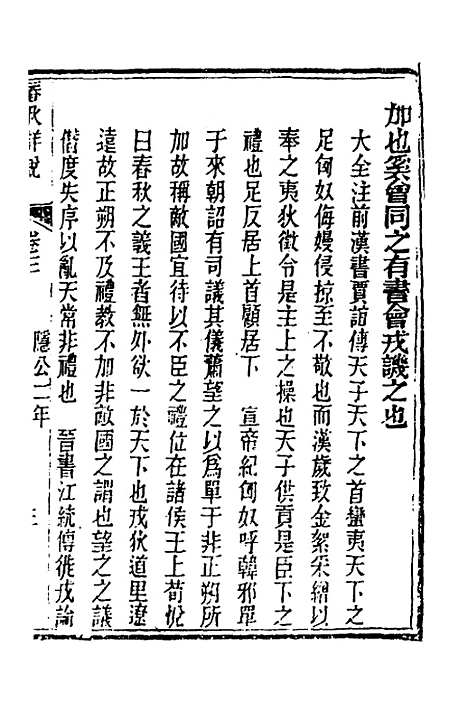 加也奚會同之有書會戎譏之也
大全注前漢書賈誼傳天子天下之首蠻夷天下之
足匈奴侮嫚侵掠至不敬也而漢歲致金絮采繒以
奉之夷狄徵令是主上之操也天子供貢是臣下之
禮也足反居上首顧居下　宣帝紀匈奴呼韓邪單
于來朝詔有司議其儀蕭望之以爲單于非正朔所
加故稱敵國宜待以不臣之禮位在諸侯王上荀悅
曰春秋之義王者無外欲一於天下也戎狄道里遼
遠故正朔不及禮教不加非敵國之謂也望之之議
僭度失序以亂天常非禮也　晉書江統傳徙戎論
春秋詳說　卷二　隱公二年　三